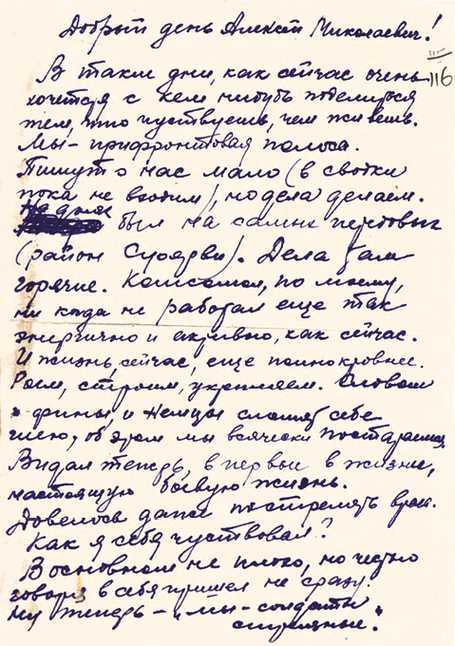 Добрый день Алексей Николаевич!
116
В такие дни, как сейчас очень
хочется с кем нибудь поделиться
тем, что чуствуешь, чем живешь.
Мы - прифронтовая полоса.
Пишут о нас мало (в сводки
пока не входим), но дела делаем.
На днях
был на самых передовых
(район Суоярви). Дела там
горячие. Комсомол, по моему,
ни когда не работал еще так
энергично и активно, как сейчас.
И жизнь, сейчас, еще полнокровнее.
Роем, строим, укрепляем. Словом
- фины и немцы сломят себе
шею, об этом мы всячески постараемся.
Видал теперь, в первые в жизни,
настоящую боевую жизнь.
Довелось даже пострелять врага.
Как я себя чуствовал?
В основном не плохо, но честно
говоря в себя пришел не сразу.
Ну теперь - „мы - солдаты
стрелянные."